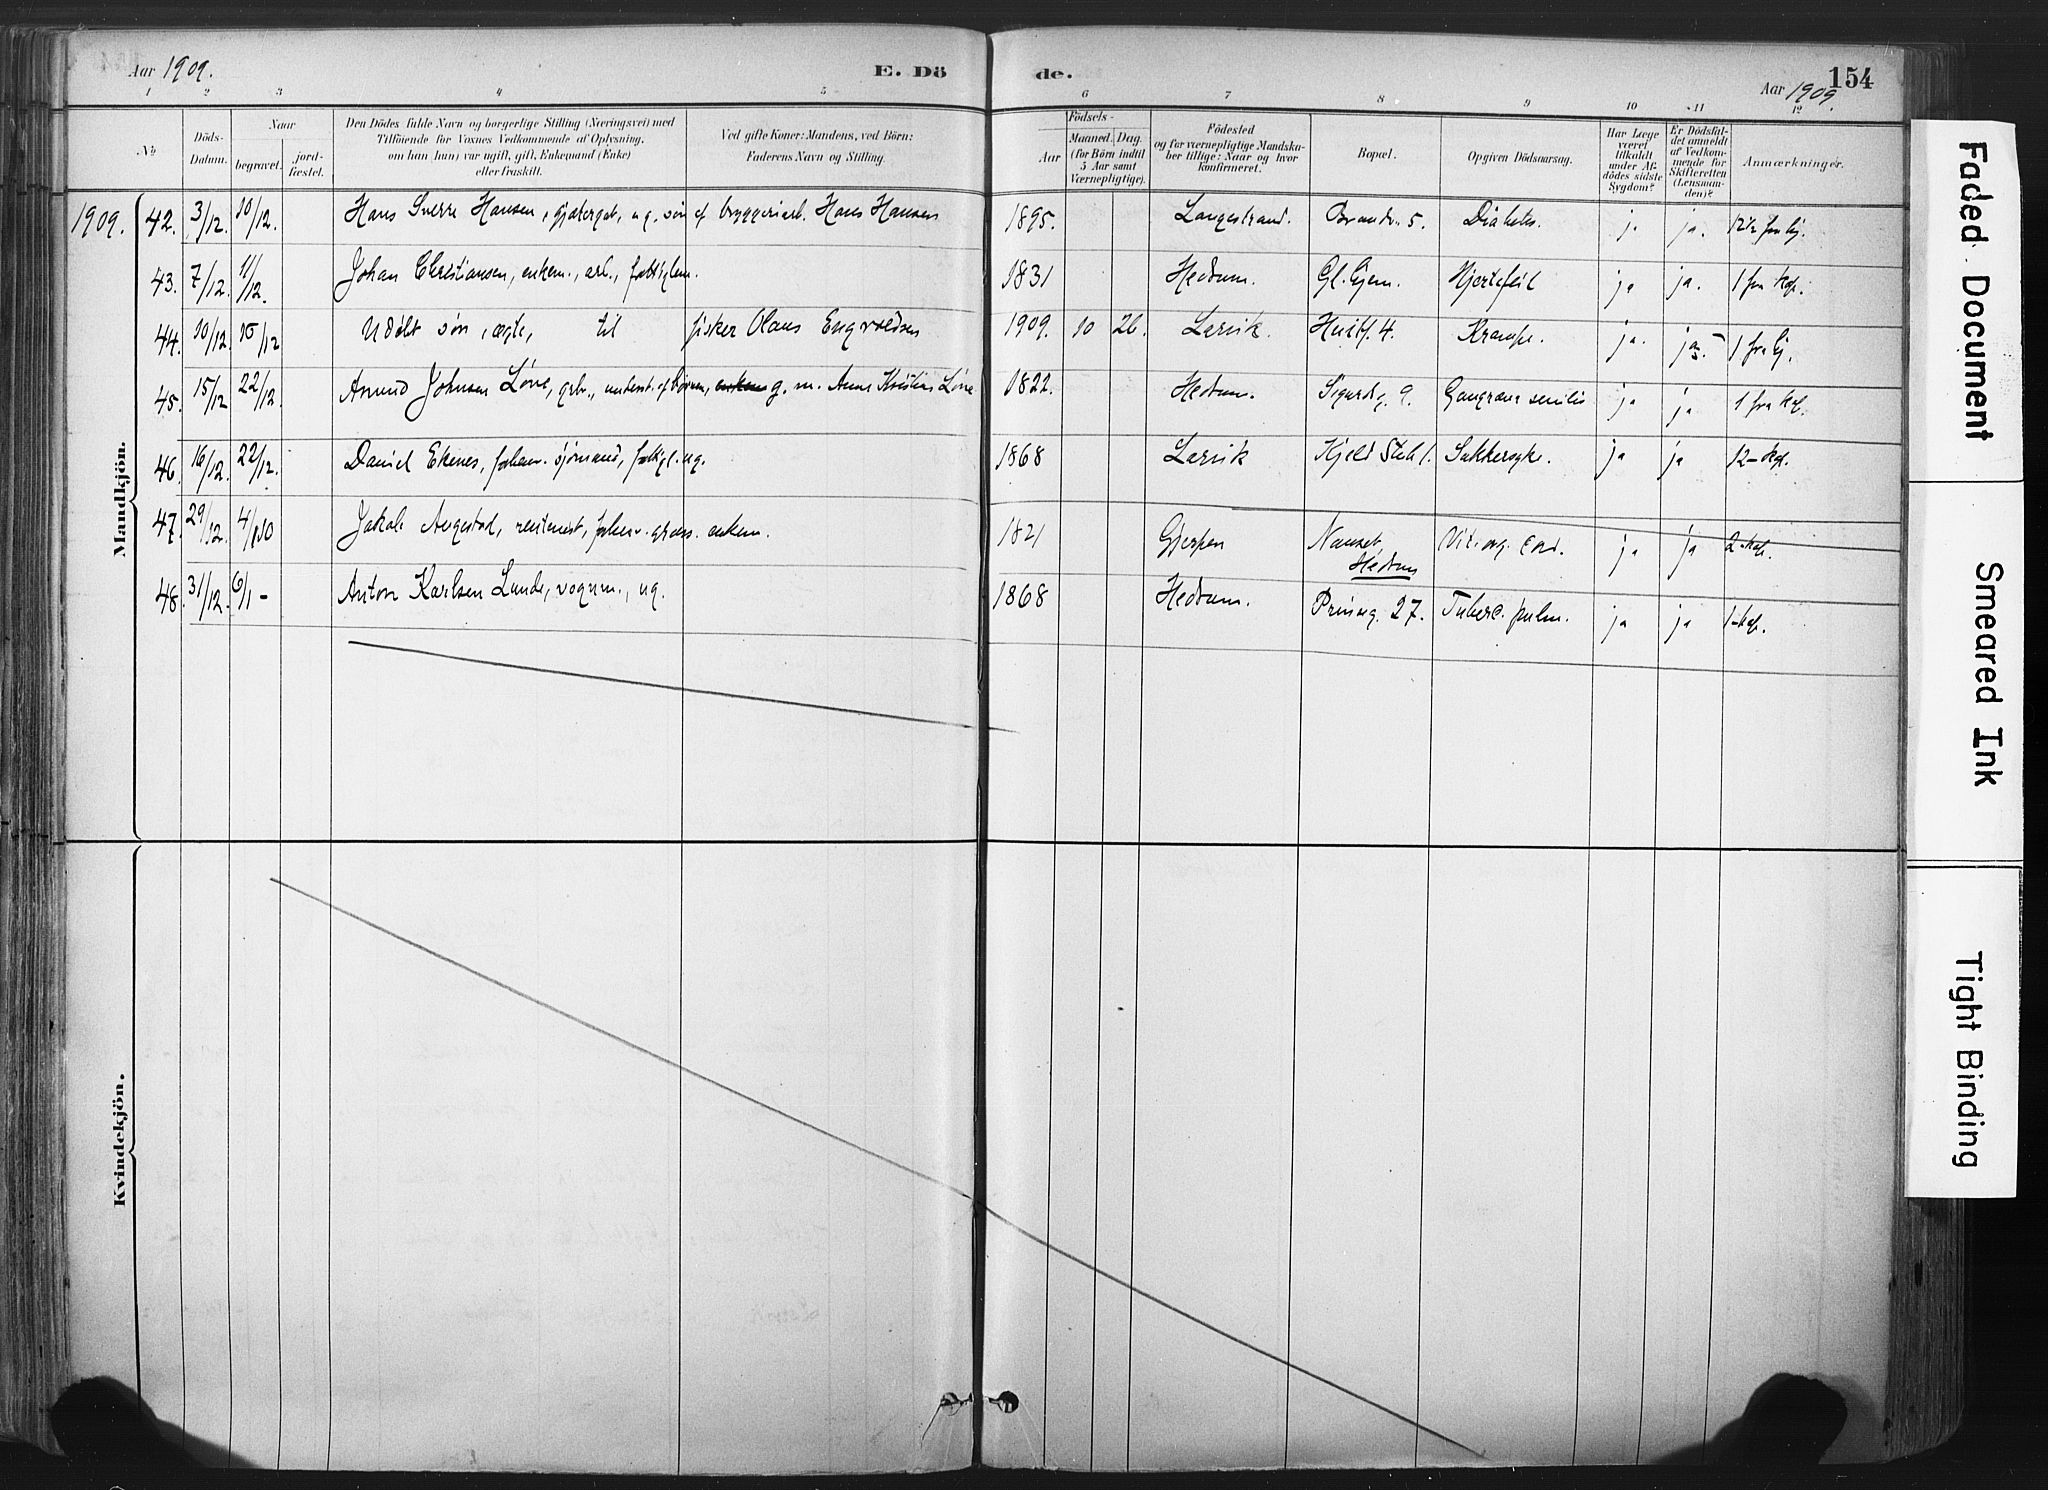 Aar 1909.
E. Dö
de.
154
Aar 1909.
1 2 3 4 5 6 7 8 9 10 11 12
No
Döds-
Datum.
Naar
begravet.
jord-
fæstet.
Den Dödes fulde Navn og borgerlige Stilling (Næringsvei) med
Tilföiende for Voxnes Vedkommende af Oplysning,
om han (hun) var ugift, gift, Enkemand (Enke)
eller fraskilt.
Ved gifte Koner: Mandens, ved Börn:
Faderens Navn og Stilling.
Födsels-
Aar
Maaned. Dag.
(for Börn indtil
5 Aar samt
Værnepligtige).
Födested
og for værnepligtige Mandska-
ber tillige: Naar og hvor
konfirmeret.
Bopæl.
Opgiven Dödsaarsag.
Har Læge
været
tilkaldt
under Af-
dödes sidste
Sygdom?
Er Dödsfal-
det anmeldt
af Vedkom-
mende for
Skifteretten
(Lensman-
den)?
Anmærkninger.
Mandkjön.
1909. 42. 3/12. 10/12. Hans Sverre Hansen, gjætergut, ug. søn af bryggeriarb. Hans Hansen 1895. Langestrand. 5. Diabetes. ja ja.
43. 7/12. 11/12. Johan Christiansen, enkem., arb., fattiglem. 1831 Hedrum. Gl.hjem. Hjertefeil ja ja. 1 fra kap.
44. 10/12. 15/12 Udøbt søn, ægte, til fisker Olaus Engvoldsen 1909. 10 26. Larvik. Huitf. 4. Krampe. ja. ja
45. 15/12 22/12. Amund Johnsen Løve, arb., underst. af børnene, enkem g. m. Anne Kristine Løve 1822. Hedrum. Sigurdsg. 9. Gangræna senilis ja ja 1 fra kap.
46. 16/12. 22/12. Daniel Ekenes, forhenv. sjømand, fattigl. ug. 1868 Larvik Kjeld Stub f. Sukkersyke. ja ja 12 - kap.
47. 29/12. 4/1 10 Jakob Augestad, rentenist, forhenv. enkem. 1821 Gjerpen Nanset Hedrum Vit. org. cord. ja ja 2 - kap.
48. 31/12. 6/1 - Anton Karlsen Lunde, vognm., ug. 1868 Hedrum. Prinseg. 27. Tuberc. pulm. ja ja 1 - kap.
Kvindekjön.
Faded Document
Smeared Ink
Tight Binding